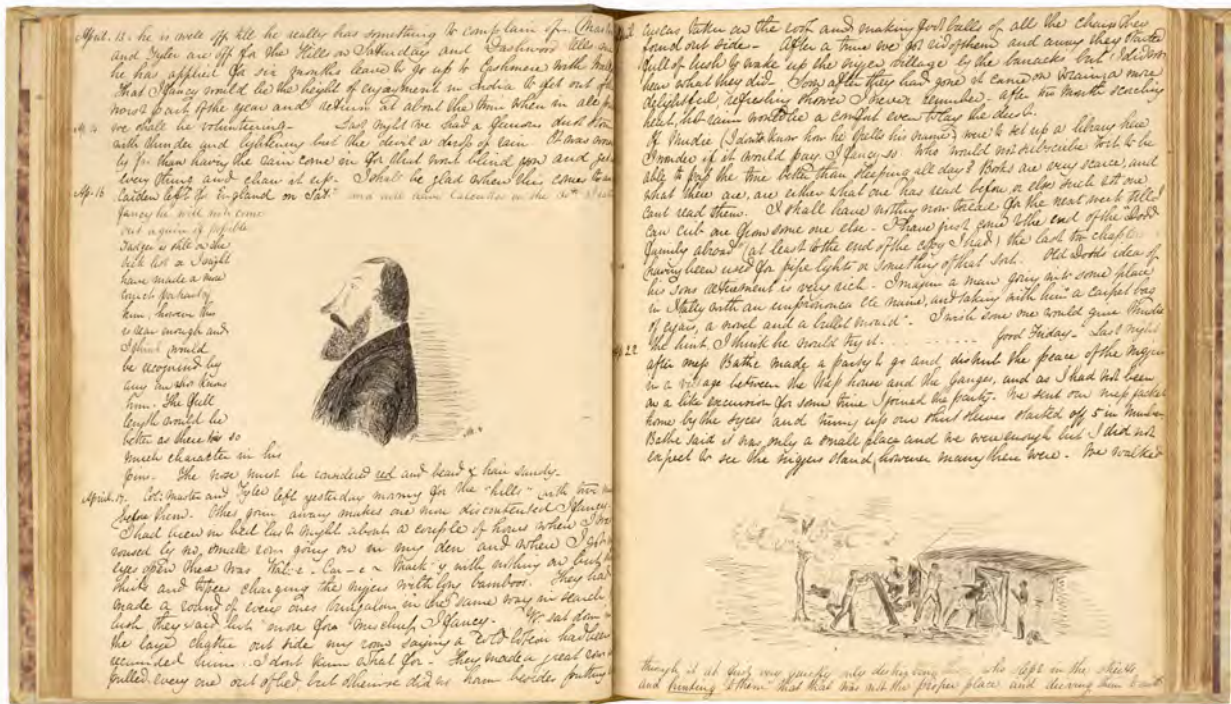 April. 13. he is well off till he really has something to complain of. Master
and Tyler are off for the Hills on Saturday and Dashwood tells me
he has applied for six months leave to go up to Cashmere with
That I fancy would be the height of enjoyment in India to get out of the
worst part of the year and return at about the time when in all
Ap. 14 we shall be volunteering. Last night we had a glorious dust storm
with thunder and lightening but the devil a drop of rain. It was
by far than having the rain come in for that wont blind you and get
every thing and clean it up. I shall be glad when this come to an
Ap. 16 left for England on Sat. and will leave Calcutta on the I
fancy he will not come
out again if possible
Badger is still on the
sick list or I might
have made a more
correct portrait of
him, however this
is near enough and
I think would
be recognised by
any one who knows
him. The full
length would be
better as there is so
much character in his
pins. The nose must be considered red and beard & hair sandy.
April. 17. Col: Master and Tyler left yesterday morning for the "hills" with two
before them. Others going away makes one more discontented I fancy.
I had been in bed last night about a couple of hours when I was
roused by no small row going on in my den and when I got my
eyes open there was with nothing on but
shirts and charging the nigers with long bamboos. They had
made a round of every ones bungalow in the same way in search
lush they said but more for mischief I fancy. sat down
the large out side my room saying a had been
recommended him. I dont know what for. They made a great row
pulled every one out of bed, but otherwise did us no harm besides putting
on the roof and making foot balls of all the chairs they
found out side. After a time we got rid of them and away they started
full of lush to wake up the niger village by the barracks but I did not
hear what they did. Soon after they had gone it came on to rain, a more
delightful refreshing shower I never remember, after two months scorching
heat, hot rain would be a comfort even to lay the dust.
If Mudie (I dont know how he spells his name) were to set up a library here
I wonder if it would pay. I fancy so. Who would not subscribe to it to be
able to pass the time better than sleeping all day? Books are very scarce, and
what there are, are either what one has read before or else such rot one
cant read them. I shall have nothing now to read for the next week till I
can cut one from some one else. I have just come to the end of the "Dodd
family abroad" (at least to the end of the copy I had) the last two chapters
having been used for pipe lights or something of that sort. Old Dodds idea of
his sons retirement is very rich. Imagin a man going into some place
in Itally with an unpronouncable name, and taking with him "a carpet bag
of cigars, a novel and a bullet mould". I wish some one would give Mudie
the hint I think he would try it. . . . . . . . . .
22 Good Friday. Last night
after mess Bathe made a party to go and disturb the peace of the niggers
in a village between the Mess house and the Ganges, and as I had not been
on a like excursion for some time I joined the party. We sent our mess jackets
home by the syces and turning up our shirt sleeves started off 5 in number
Bathe said it was only a small place and we were enough but I did not
expect to see the niggers stand, however many there were. We walked
through it at first very quietly only disturbing who slept in the streets
and hinting to them that that was not the proper place and